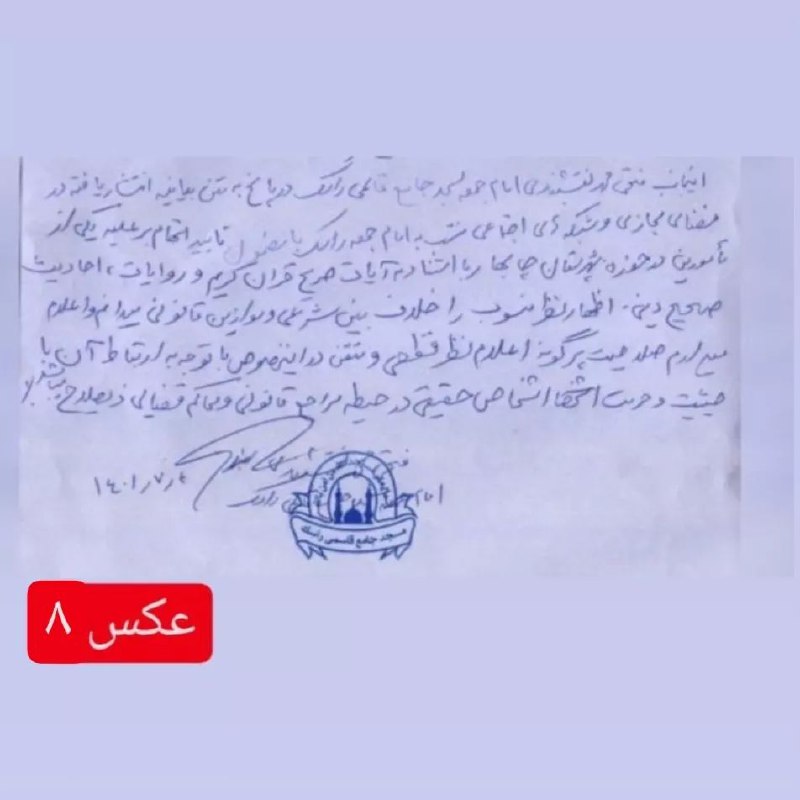 اینجانب مفتی محمد نقشبندی امام جمعه مسجد جامع قاسمی راسک در پاسخ به متن بیانیه انتشار یافته در
فضای مجازی و شبکه های اجتماعی منتسب به امام جمعه راسک با مضمون تایید اتهام بر علیه یکی از
مأمورین در حوزه شهرستان چابهار با استناد به آیات صریح قرآن کریم و روایات، احادیث
صحیح دینی. اظهار نظر منسوب را خلاف بین شرعی و موازین قانونی میدانم و اعلام
هر گونه اعلام نظر قطعی و متقن در این خصوص با توجه به ارتباط آن با
حیثیت و حرمت اشخاص حقیقی در حیطه مراجع قانونی و محاکم قضایی ذیصلاح میباشد
امام راسک
۱۴۰۱
مسجد جامع قاسمی راسک
عکس ۸